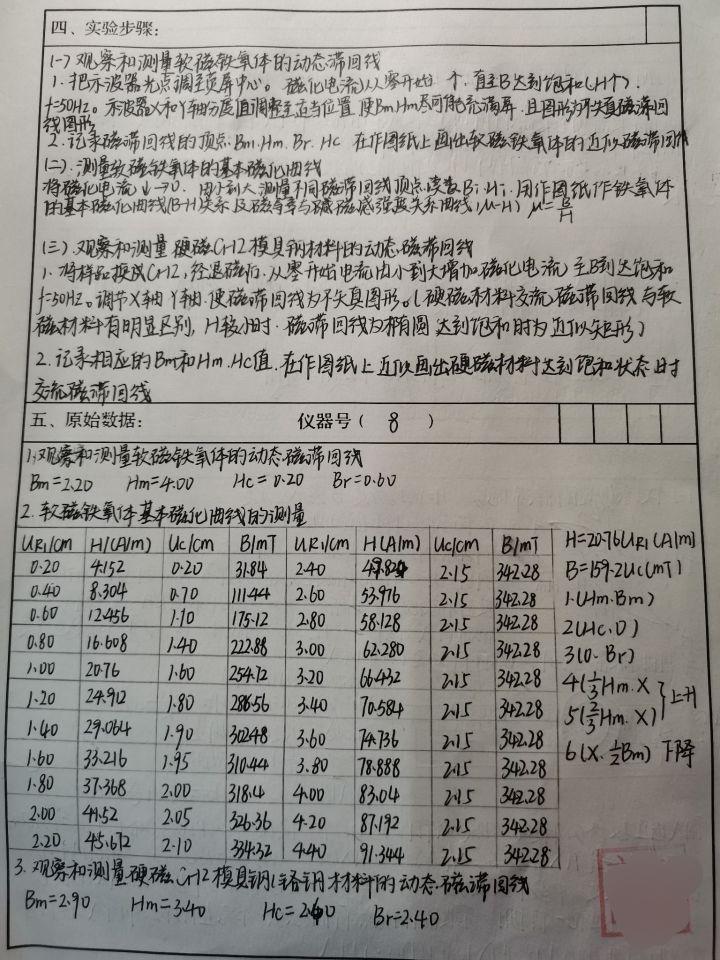 四、实验步骤:
(一)观察和测量软磁铁氧体的动态磁滞回线
1.把示波器光点调至荧屏中心。磁化电流从零开始个.直至B达到饱和(H个).
f=50Hz。示波器X和Y轴分度值调整至适当位置使Bm.Hm尽可能充满屏.且图形为不失真磁滞回
线图形
2.记录磁滞回线的顶点.Bm.Hm.Br.Hc 在作图纸上画出软磁铁氧体的近似磁滞回线
(二).测量软磁铁氧体的基本磁化曲线
将磁化电流↓→0. 由小到大测量不同磁滞回线顶点读数Bi.Hi.用作图纸作铁氧体
的基本磁化曲线(B-H)关系及磁导率与磁感强度关系曲线(μ-H) μ=B/H
(三).观察和测量硬磁Cr12模具钢材料的动态磁滞回线
1.将样品换成Cr12,经退磁后.从零开始电流由小到大增加磁化电流至B到达饱和
f=50Hz。调节X轴Y轴.使磁滞回线为不失真图形。(硬磁材料交流磁滞回线与软
磁材料有明显区别,H较小时.磁滞回线为椭圆 达到饱和时为近似矩形)
2.记录相应的Bm和Hm.Hc值.在作图纸上近似画出硬磁材料达到饱和状态时
交流磁滞回线
五、原始数据: 仪器号( 8 )
1.观察和测量软磁铁氧体的动态磁滞回线
Bm=2.20 Hm=4.00 Hc=0.20 Br=0.60
2.软磁铁氧体基本磁化曲线的测量
UR1/cm H/(A/m) Uc/cm B/mT UR1/cm H(A/m) Uc/cm B/mT H=20.76UR1(A/m)
0.20 4.152 0.20 31.84 2.40 49.824 2.15 342.28 B=159.2Uc(mT)
0.40 8.304 0.70 111.44 2.60 53.976 2.15 342.28 1.(Hm.Bm)
0.60 12.456 1.10 175.12 2.80 58.128 2.15 342.28 2(Hc.0)
0.80 16.608 1.40 222.88 3.00 62.280 2.15 342.28 3(0.Br)
1.00 20.76 1.60 254.72 3.20 66.432 2.15 342.28 4(1/3Hm.X
1.20 24.912 1.80 286.56 3.40 70.584 2.15 342.28 5(2/3Hm.X) }上升
1.40 29.064 1.90 302.48 3.60 74.736 2.15 342.28 6(X.1/2Bm) 下降
1.60 33.216 1.95 310.44 3.80 78.888 2.15 342.28
1.80 37.368 2.00 318.4 4.00 83.04 2.15 342.28
2.00 41.52 2.05 326.36 4.20 87.192 2.15 342.28
2.20 45.672 2.10 334.32 4.40 91.344 2.15 342.28
3.观察和测量硬磁Cr12模具钢(铬钢)材料的动态磁滞回线
Bm=2.90 Hm=3.40 Hc=2.60 Br=2.40